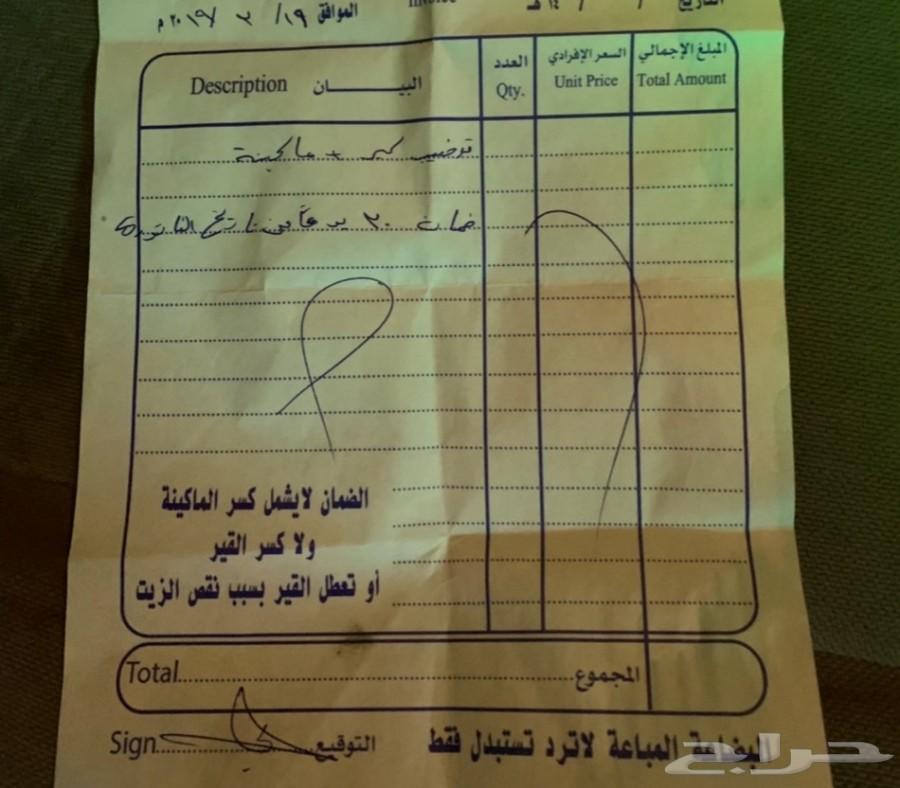 التاريخ / / ١٤ هـ Invoice الموافق ١٩/ ٣ /٢٠١٩ م
البيـــــان Description العدد Qty. السعر الإفرادي Unit Price المبلغ الإجمالي Total Amount
توضيب كير + ماكينة
ضمان ٢٠ يوماً من تاريخ الفاتورة
الضمان لايشمل كسر الماكينة
ولا كسر القير
أو تعطل القير بسبب نقص الزيت
Total المجموع
Sign التوقيع
البضاعة المباعة لاترد تستبدل فقط
حراج